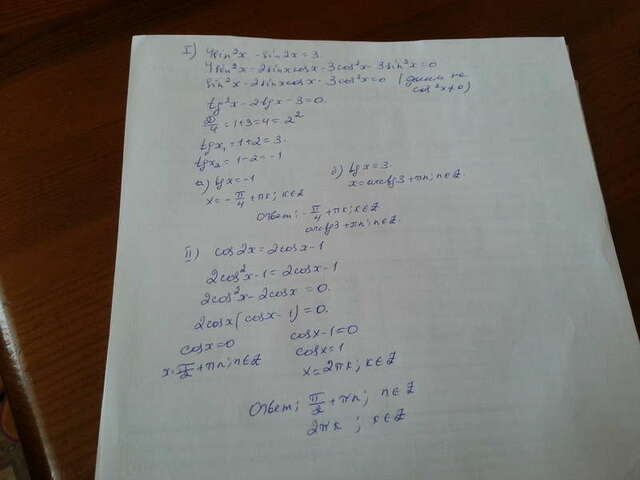 I) 4sin²x - sin2x = 3
4sin²x - 2sinxcosx - 3cos²x - 3sin²x = 0
sin²x - 2sinxcosx - 3cos²x = 0 (делим на cos²x ≠ 0)
tg²x - 2tgx - 3 = 0.
D/4 = 1+3 = 4 = 2²
tgx₁ = 1+2 = 3.
tgx₂ = 1-2 = -1
а) tgx = -1
x = -π/4 + πk; k∈Z
б) tgx = 3.
x = arctg3 + πn; n∈Z.
Ответ: -π/4 + πk; k∈Z
arctg3 + πn; n∈Z.
II) cos2x = 2cosx - 1
2cos²x - 1 = 2cosx - 1
2cos²x - 2cosx = 0.
2cosx(cosx - 1) = 0.
cosx = 0
x = π/2 + πn; n∈Z
cosx - 1 = 0
cosx = 1
x = 2πk; k∈Z
Ответ: π/2 + πn; n∈Z
2πk ; k∈Z